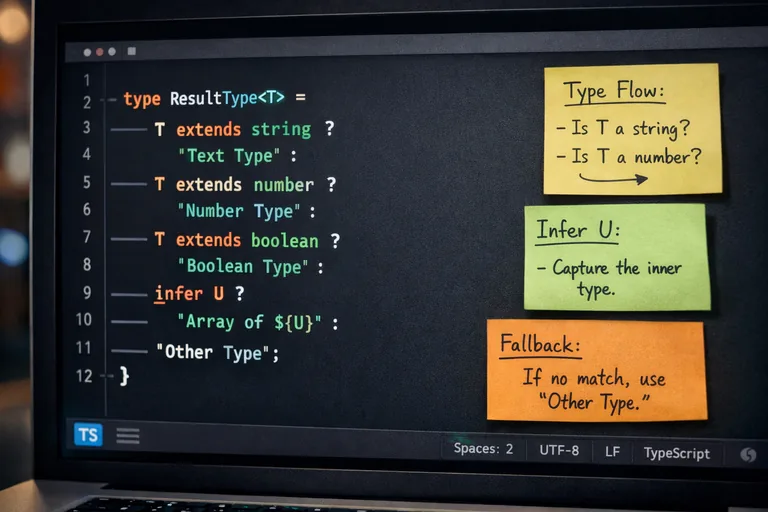 1
2 type ResultType<T> =
3 T extends string ?
4 "Text Type" :
5 T extends number ?
6 "Number Type" :
7 T extends boolean ?
8 "Boolean Type" :
9 infer U ?
10 "Array of ${U}" :
11 "Other Type";
12 }
Type Flow:
- Is T a string?
- Is T a number?
Infer U:
- Capture the inner
type.
Fallback:
If no match, use
"Other Type."
TS
Spaces: 2 UTF-8 LF TypeScript